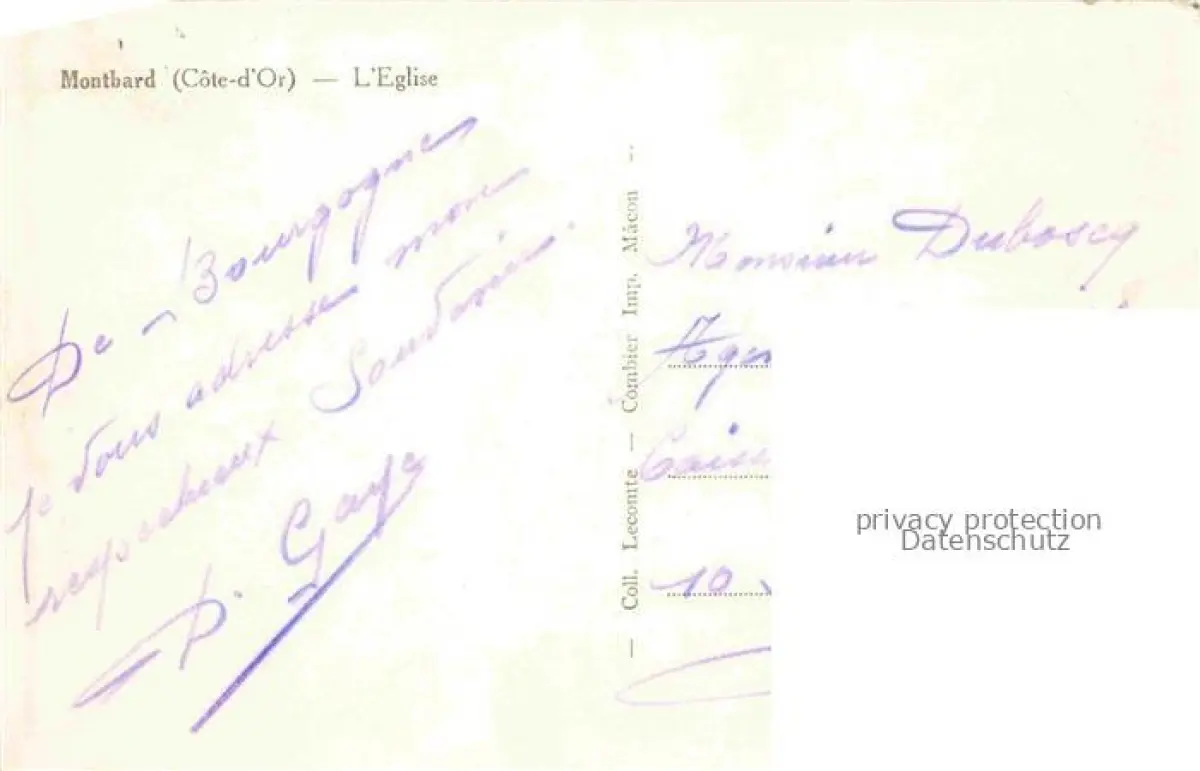 Montbard (Côte-d'Or) — L'Eglise
De Bourgogne
je vous adresse mon
respectueux Souvenir.
P. Gaye
— Coll. Leconte — Combier Imp. Mâcon —
Monsieur Duboscq
10
privacy protection
Datenschutz